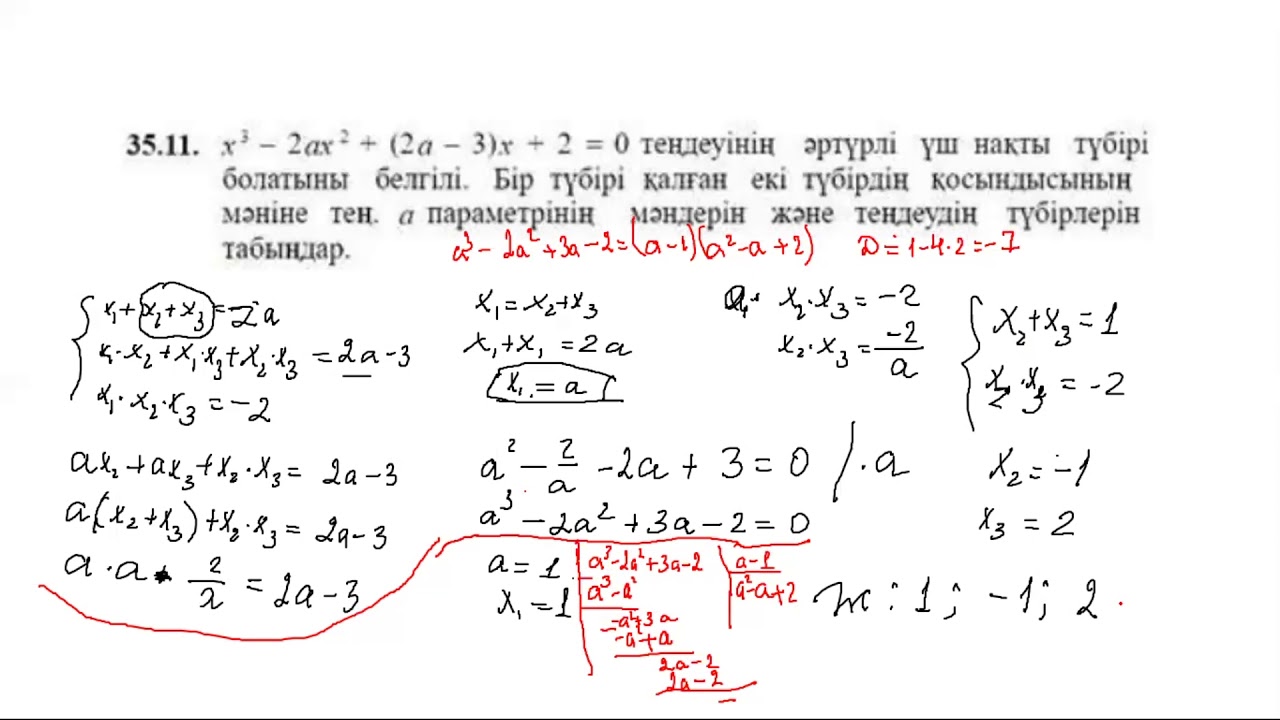 35.11. x³ − 2ax² + (2a − 3)x + 2 = 0 теңдеуінің әртүрлі үш нақты түбірі
болатыны белгілі. Бір түбірі қалған екі түбірдің қосындысының
мәніне тең. a параметрінің мәндерін және теңдеудің түбірлерін
табыңдар.
a³ − 2a² + 3a − 2 = (a − 1)(a² − a + 2) D = 1 − 4·2 = −7
x₁ + x₂ + x₃ = 2a
x₁·x₂ + x₁·x₃ + x₂·x₃ = 2a − 3
x₁·x₂·x₃ = −2
ax₂ + ax₃ + x₂·x₃ = 2a − 3
a(x₂ + x₃) + x₂·x₃ = 2a − 3
a·a - 2/a = 2a − 3
x₁ = x₂ + x₃
x₁ + x₁ = 2a
x₁ = a
a² − 2/a − 2a + 3 = 0 / ·a
a³ − 2a² + 3a − 2 = 0
a = 1
x₁ = 1
a³ − 2a² + 3a − 2 | a − 1
a³ − a² | a² − a + 2
−a² + 3a
−a² + a
2a − 2
2a − 2
x₂·x₃ = −2
x₂·x₃ = −2/a
x₂ + x₃ = 1
x₂·x₃ = −2
x₂ = −1
x₃ = 2
Ж: 1; −1; 2.